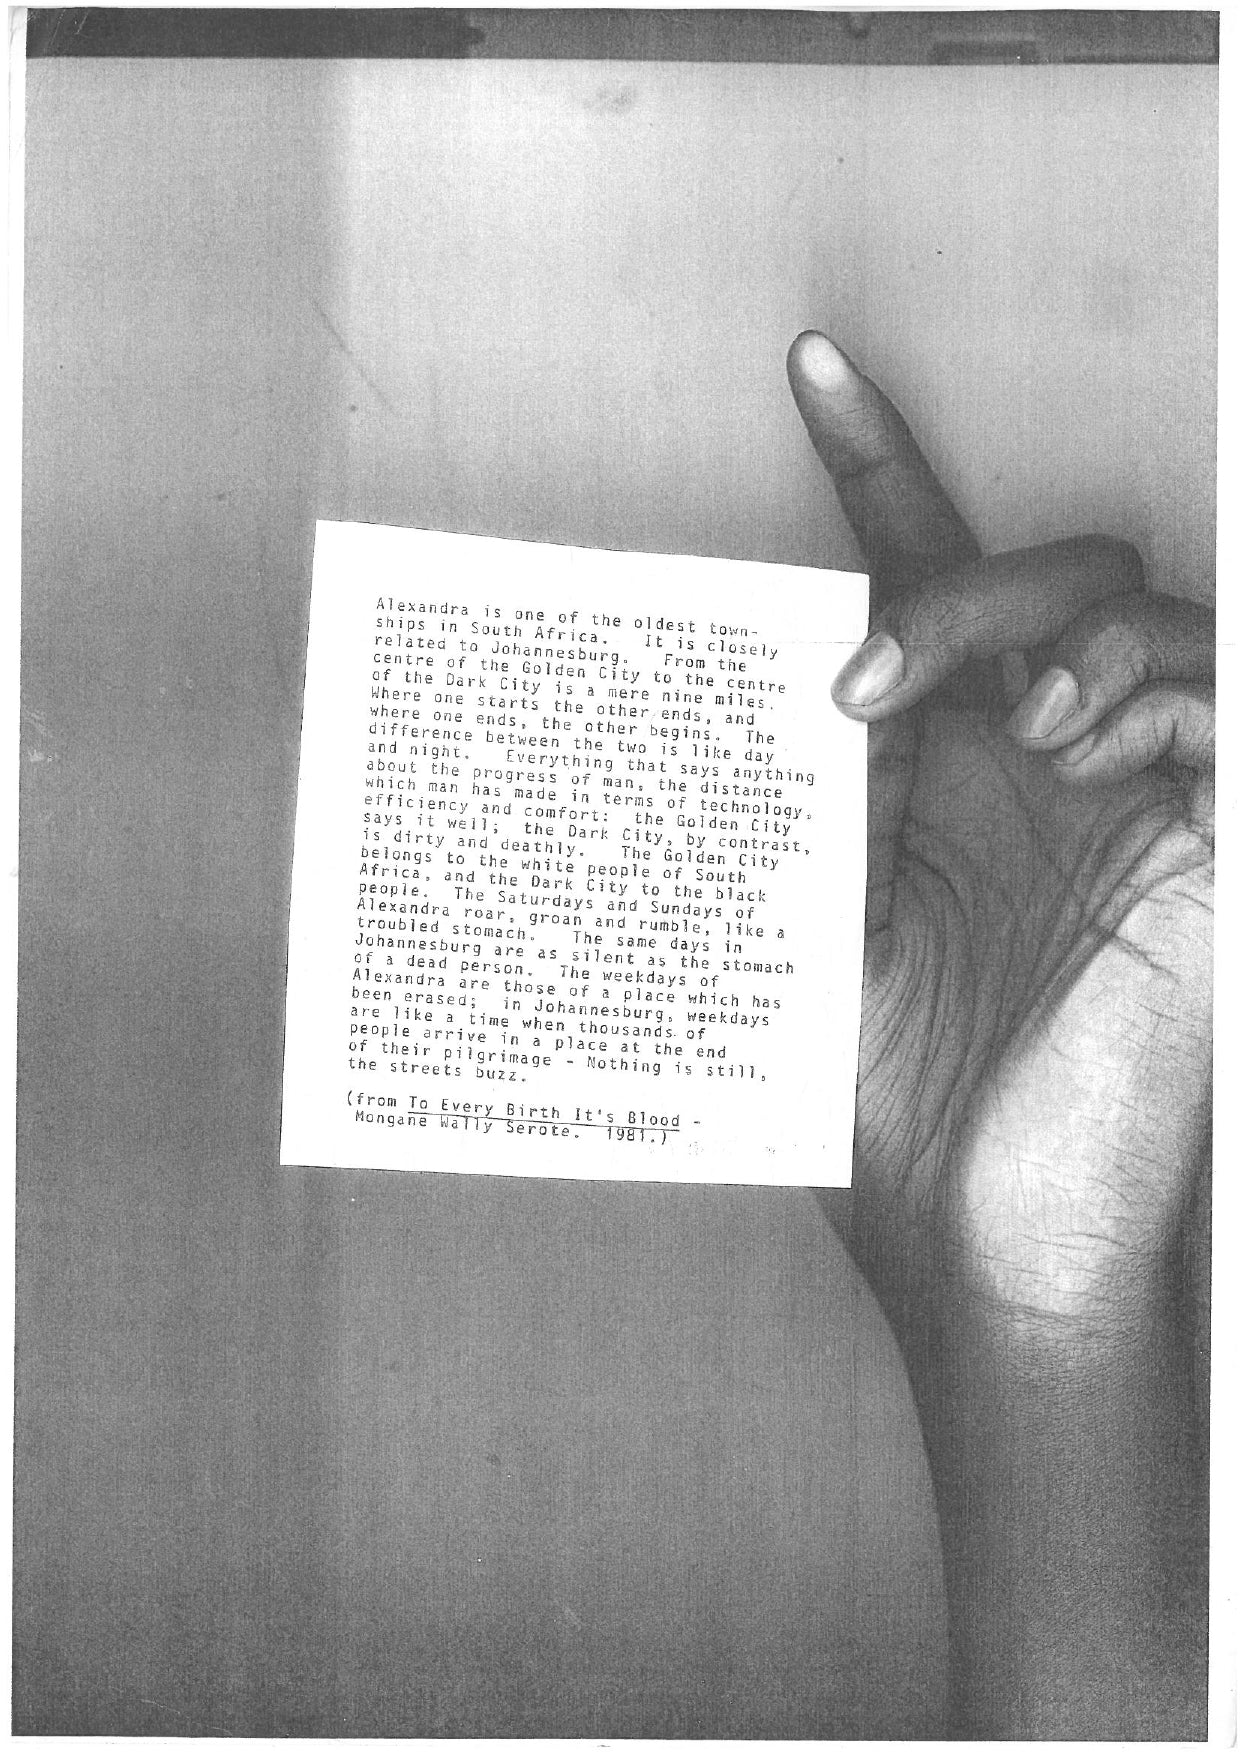 Alexandra is one of the oldest town-
ships in South Africa. It is closely
related to Johannesburg. From the
centre of the Golden City to the centre
of the Dark City is a mere nine miles.
Where one starts the other ends, and
where one ends, the other begins. The
difference between the two is like day
and night. Everything that says anything
about the progress of man, the distance
which man has made in terms of technology,
efficiency and comfort: the Golden City
says it well; the Dark City, by contrast,
is dirty and deathly. The Golden City
belongs to the white people of South
Africa, and the Dark City to the black
people. The Saturdays and Sundays of
Alexandra roar, groan and rumble, like a
troubled stomach. The same days in
Johannesburg are as silent as the stomach
of a dead person. The weekdays of
Alexandra are those of a place which has
been erased; in Johannesburg, weekdays
are like a time when thousands of
people arrive in a place at the end
of their pilgrimage - Nothing is still,
the streets buzz.
(from To Every Birth It's Blood -
Mongane Wally Serote. 1981.)